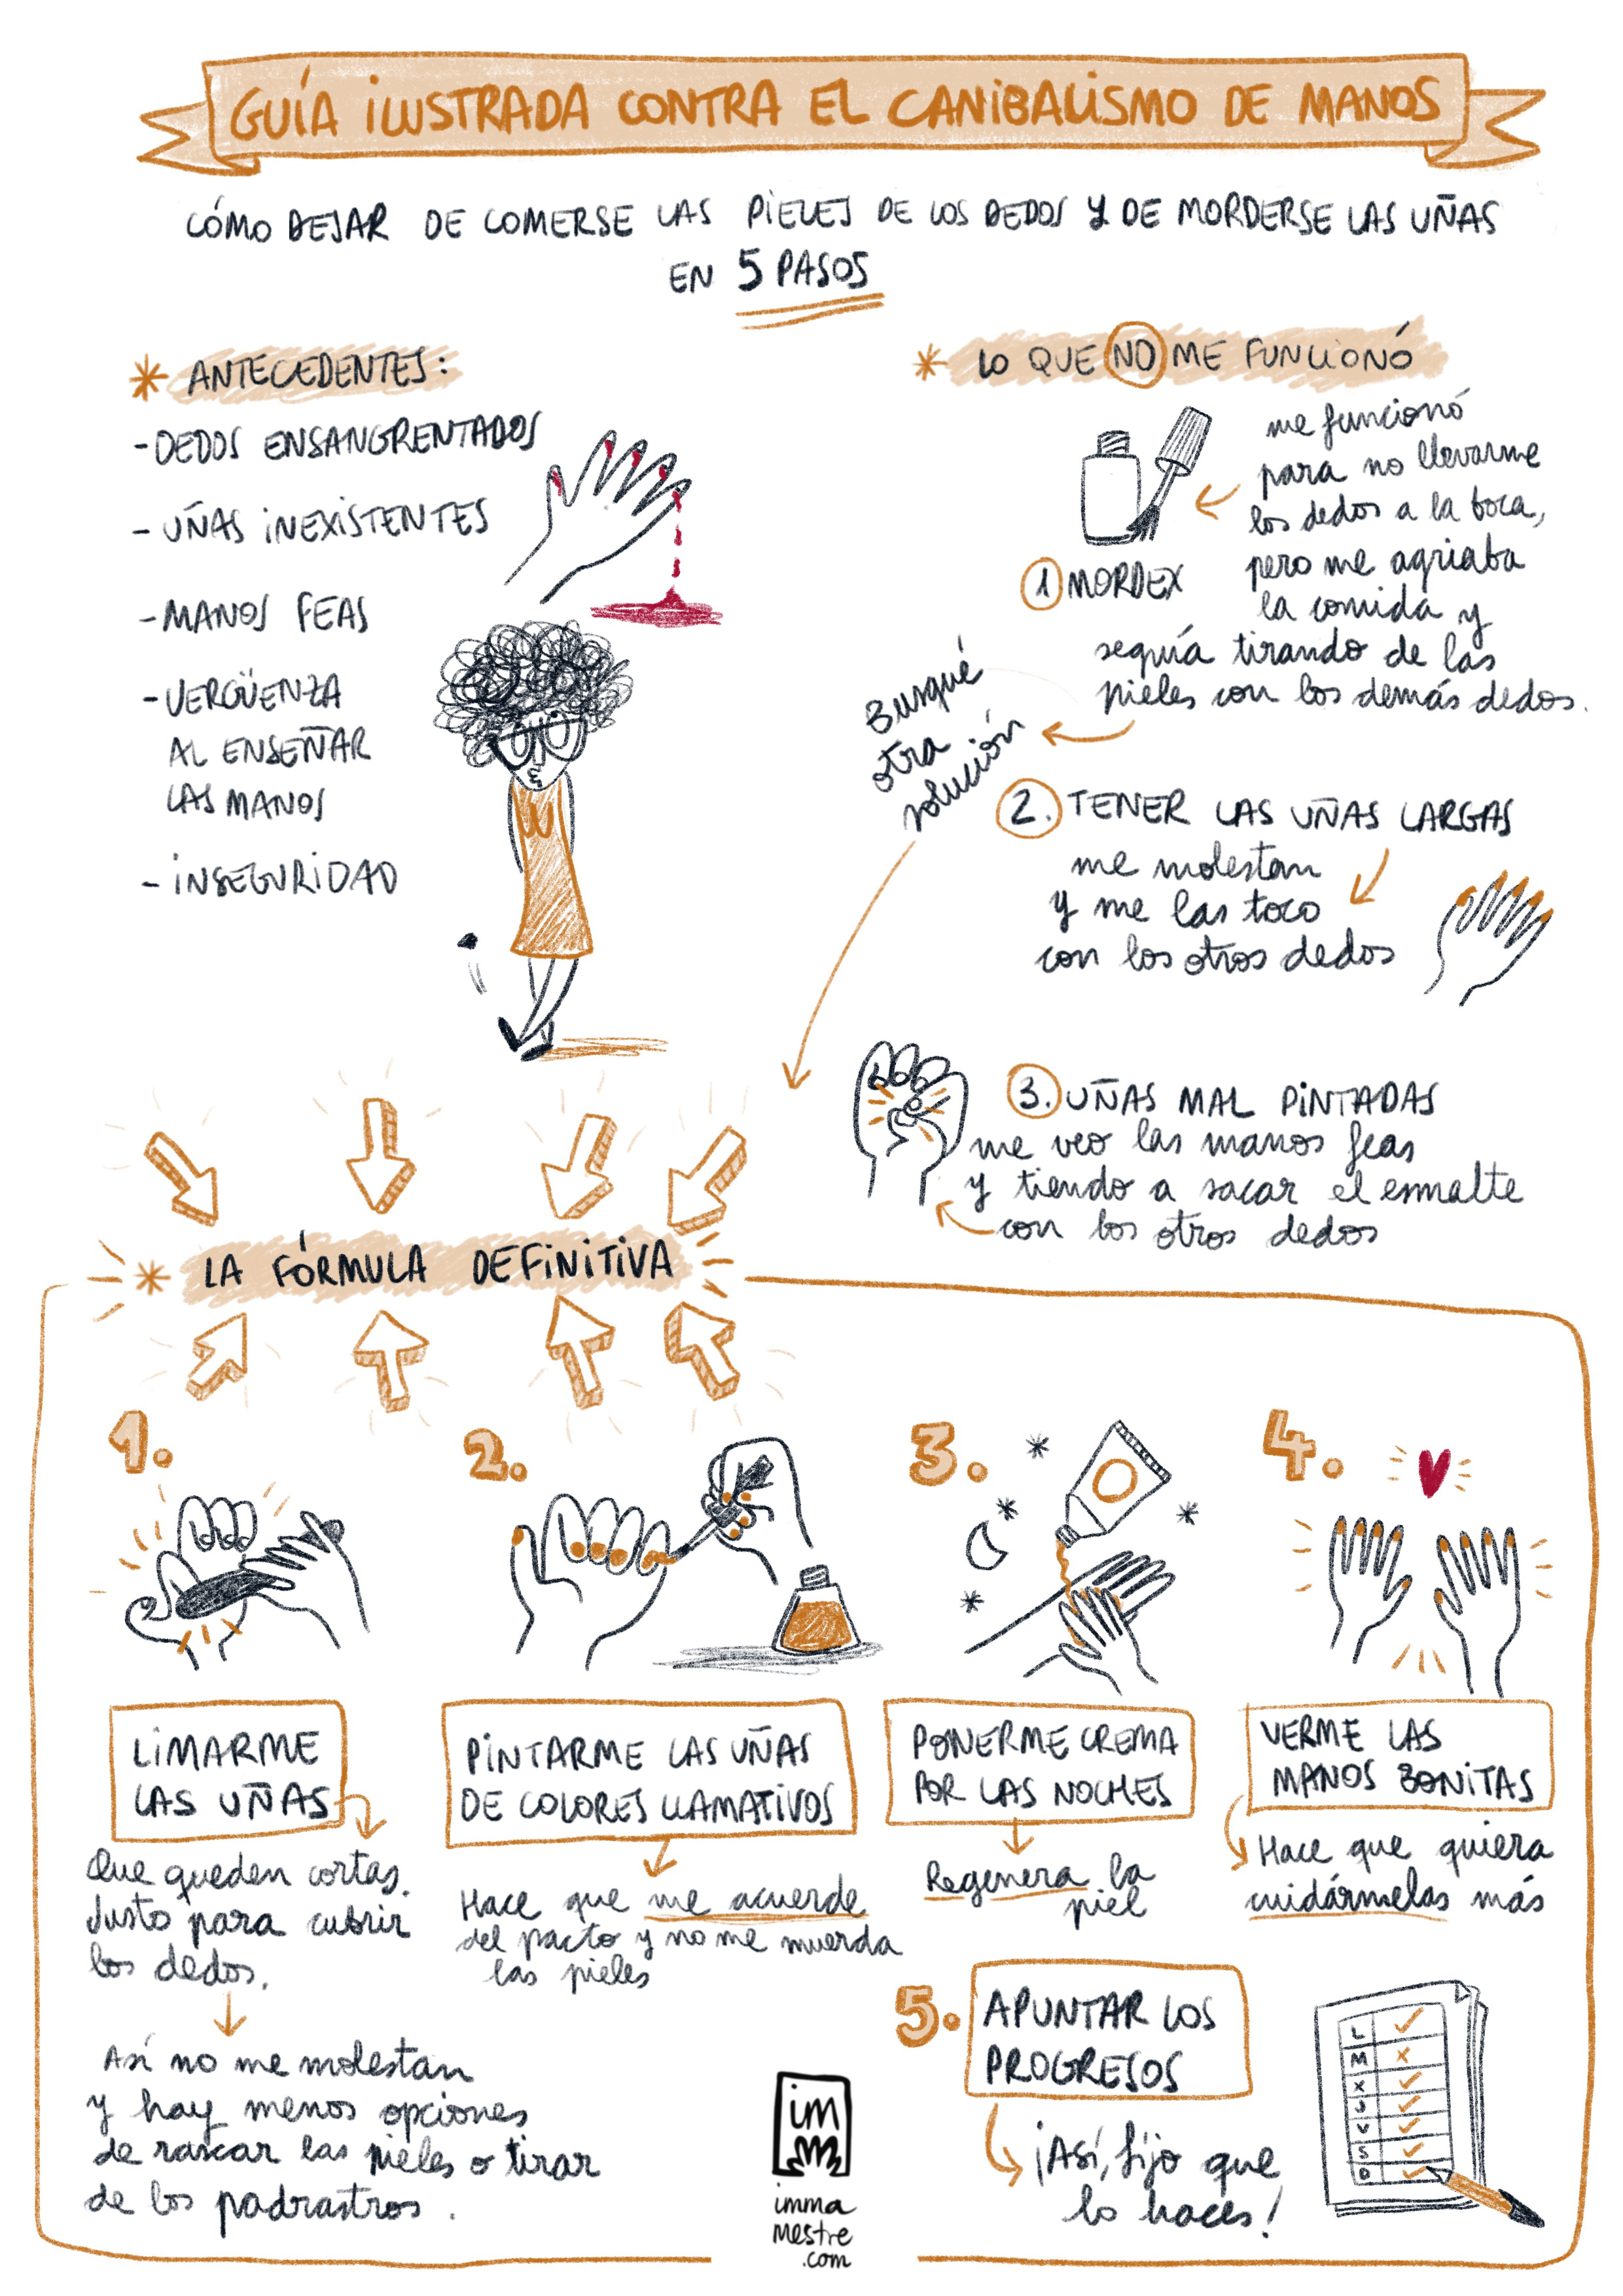 GUÍA ILUSTRADA CONTRA EL CANIBALISMO DE MANOS
CÓMO DEJAR DE COMERSE LAS PIELES DE LOS DEDOS Y DE MORDERSE LAS UÑAS
EN 5 PASOS
* ANTECEDENTES:
- DEDOS ENSANGRENTADOS
- UÑAS INEXISTENTES
- MANOS FEAS
- VERGÜENZA
AL ENSEÑAR
LAS MANOS
- INSEGURIDAD
* LO QUE NO ME FUNCIONÓ
1 MORDEX
me funcionó
para no llevarme
los dedos a la boca,
pero me agriaba
la comida y
seguía tirando de las
pieles con los demás dedos.
Busqué
otra
solución
2. TENER LAS UÑAS LARGAS
me molestan
y me las toco
con los otros dedos
3. UÑAS MAL PINTADAS
me veo las manos feas
y tiendo a sacar el esmalte
con los otros dedos
* LA FÓRMULA DEFINITIVA
1.
LIMARME
LAS UÑAS
Que queden cortas.
Justo para cubrir
los dedos.
Así no me molestan
y hay menos opciones
de rascar las pieles o tirar
de los padrastros.
2.
PINTARME LAS UÑAS
DE COLORES LLAMATIVOS
Hace que me acuerde
del pacto y no me muerda
las pieles
3.
PONERME CREMA
POR LAS NOCHES
Regenera la
piel
4.
VERME LAS
MANOS BONITAS
Hace que quiera
cuidármelas más
5. APUNTAR LOS
PROGRESOS
¡Así, fijo que
lo haces!
L ✓
M x
X ✓
J ✓
V ✓
S ✓
D ✓
im
m
imma
mestre
.com